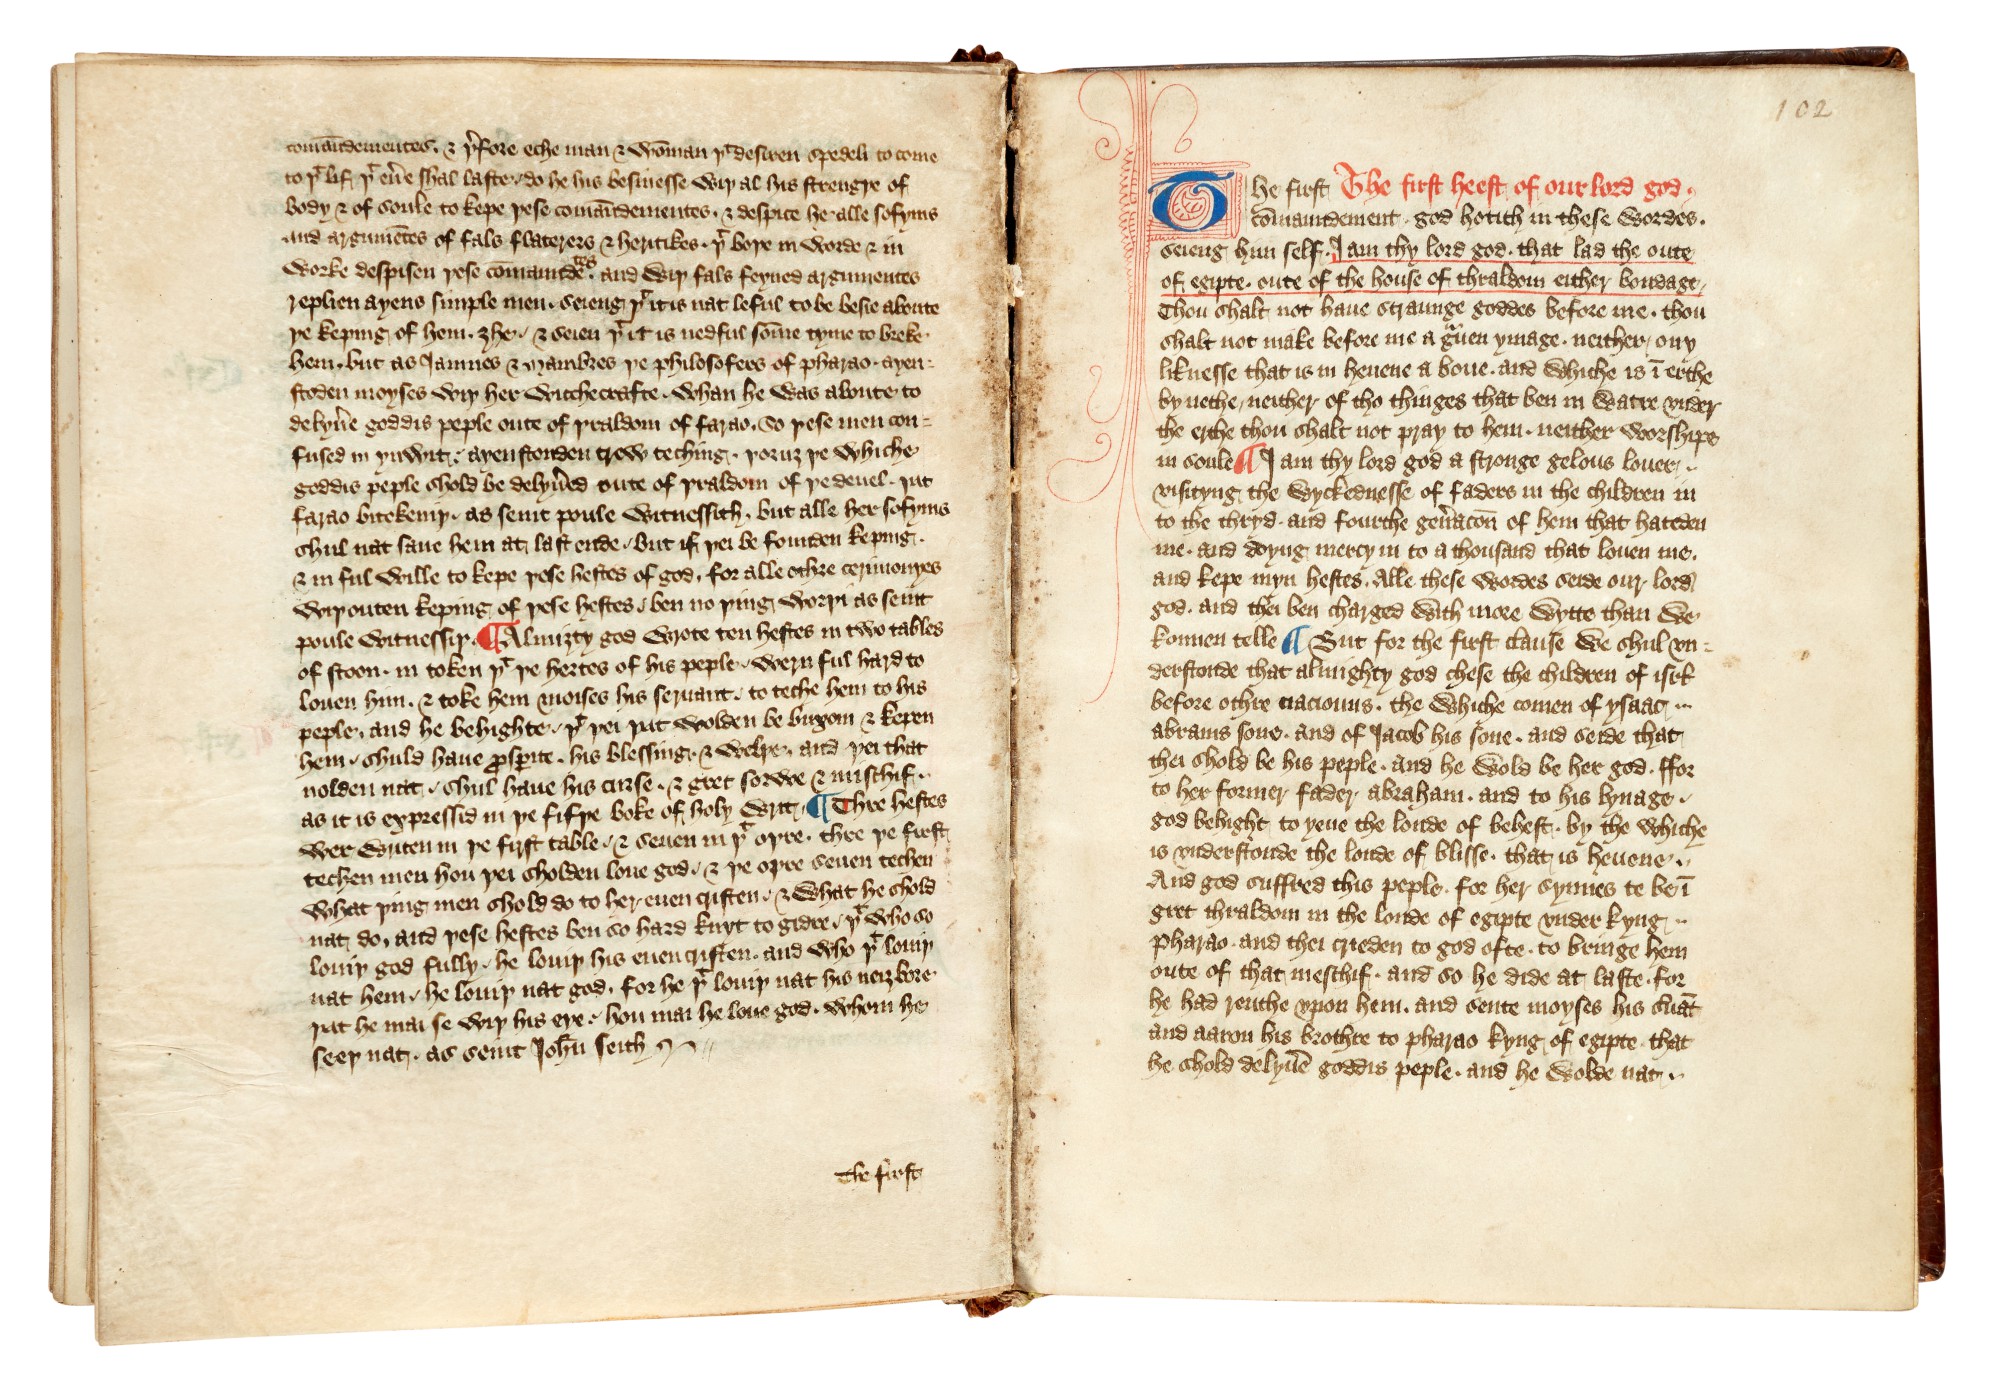 comaūdementes. & þͬfore eche man & wōman þͭ desiren spedeli to come
to þͭ lif, þͭ eu̅e shal laste / do he his besinesse wiþ al his strengþe of
body & of soule to kepe þese comaūdementes. & despice he alle sofyms
and argumētes of fals flaterers & heritikes. þͭ boþe in worde & in
worke despisen þese cōmaundētes. and wiþ fals feyned argumentes
replien aȝens simple men. seieng þͭ it is nat leful to be besie aboute
þe keping of hem. ȝhe / & seien þͭ it is nedful sōme tyme to breke
hem. but as Iamnes & Mambres þe philosofers of pharao. aȝen-
stoden moyses wiþ her wicchecrafte. whan he was aboute to
delyu̅e goddis peple oute of þraldom of farao. so þese men con=
fused in ynwit / aȝenstonden trew teching. þoruȝ þe whiche
goddis peple shold be delyu̅ed oute of þraldom of þe deuel. þat
farao bitokeniþ. as seint poule witnessith. but alle her sofyms
shul nat saue hem at last ende / but if þei be founden keping.
& in ful wille to kepe þese hestes of god, for alle othre cerimonyes
wiþouten keping of þese hestes / ben no þing worþi as seint
poule witnessiþ. ¶ Almiȝty god wrote ten hestes in two tables
of stoon. in token þͭ þe hertes of his peple / wern ful hard to
louen him. & toke hem moises his seruant / to teche hem to his
peple. and he behighte / þͭ þei þat wolden be buxom & kepen
hem / shuld haue ꝓsꝑite. his blessing. & welþe. and þei that
nolden nat / shul haue his curse. & gret sorwe & mischif..
as it is expressid in þe fifþe boke of holy writ / ¶ Thre hestes
wer writen in þe first table / & seuen in þͭ oþre. thre þe first
techen men hou þei sholden loue god / & þe oþre seuen techen
what þing men shold do to her euen cristen / & what he shold
nat do, and þese hestes ben so hard knyt to gidre / þͭ who so
louiþ god fully / he louiþ his euen cristen. and who þͭ louiþ
nat hem / he louiþ nat god. for he þͭ louiþ nat his neiȝbore
þat he mai se wiþ his eye / hou mai he loue god. whom he
seeþ nat. as seint Joħn seith
The first
102
The first The first heest of our lord god.
cōmaundement. god hotith in these wordes.
seieng him self. I am thy lord god. that lad the oute
of egipte. oute of the house of thraldom either bondage /
Thou shalt not haue straunge goddes before me. thou
shalt not make before me a gͣuen ymage. neither ony
liknesse that is in heuene a boue. and whiche is ī erthe
by nethe / neither of tho thinges that ben in watre vnder
the erthe thou shalt not pray to hem. neither worshipe
in soule ¶ I am thy lord god a stronge gelous louer..
visityng the wyckednesse of faders in the children in
to the thryd. and fourthe geñacōn of hem that hateden
me. and doyng mercy in to a thousand that louen me.
and kepe myn hestes. Alle these wordes seide our lord
god. and thei ben charged with more wytte than we
konnen telle ¶ But for the first clause we shul vn=
derstonde that almighty god chese the children of isrl̄
before othre naciouns. the whiche comen of ysaac..
abrams sone. and of Jacob his sone. and seide that
thei shold be his peple. and he wold be her god. ffor
to her former fader abraham. and to his lynage.
god behight to yeue the londe of behest. by the whiche
is vnderstonde the londe of blisse. that is heuene..
And god suffred this peple. for her synnes to be ī
gret thraldom in the londe of egipte vnder kyng..
pharao. and thei crieden to god ofte. to bringe hem
oute of that meschif. and so he dide at laste. for
he had reuthe vpon hem. and sente moyses his su̅āt
and aaron his brothre to pharao kyng of egipte. that
he shold delyu̅e goddis peple. and he wolde nat..